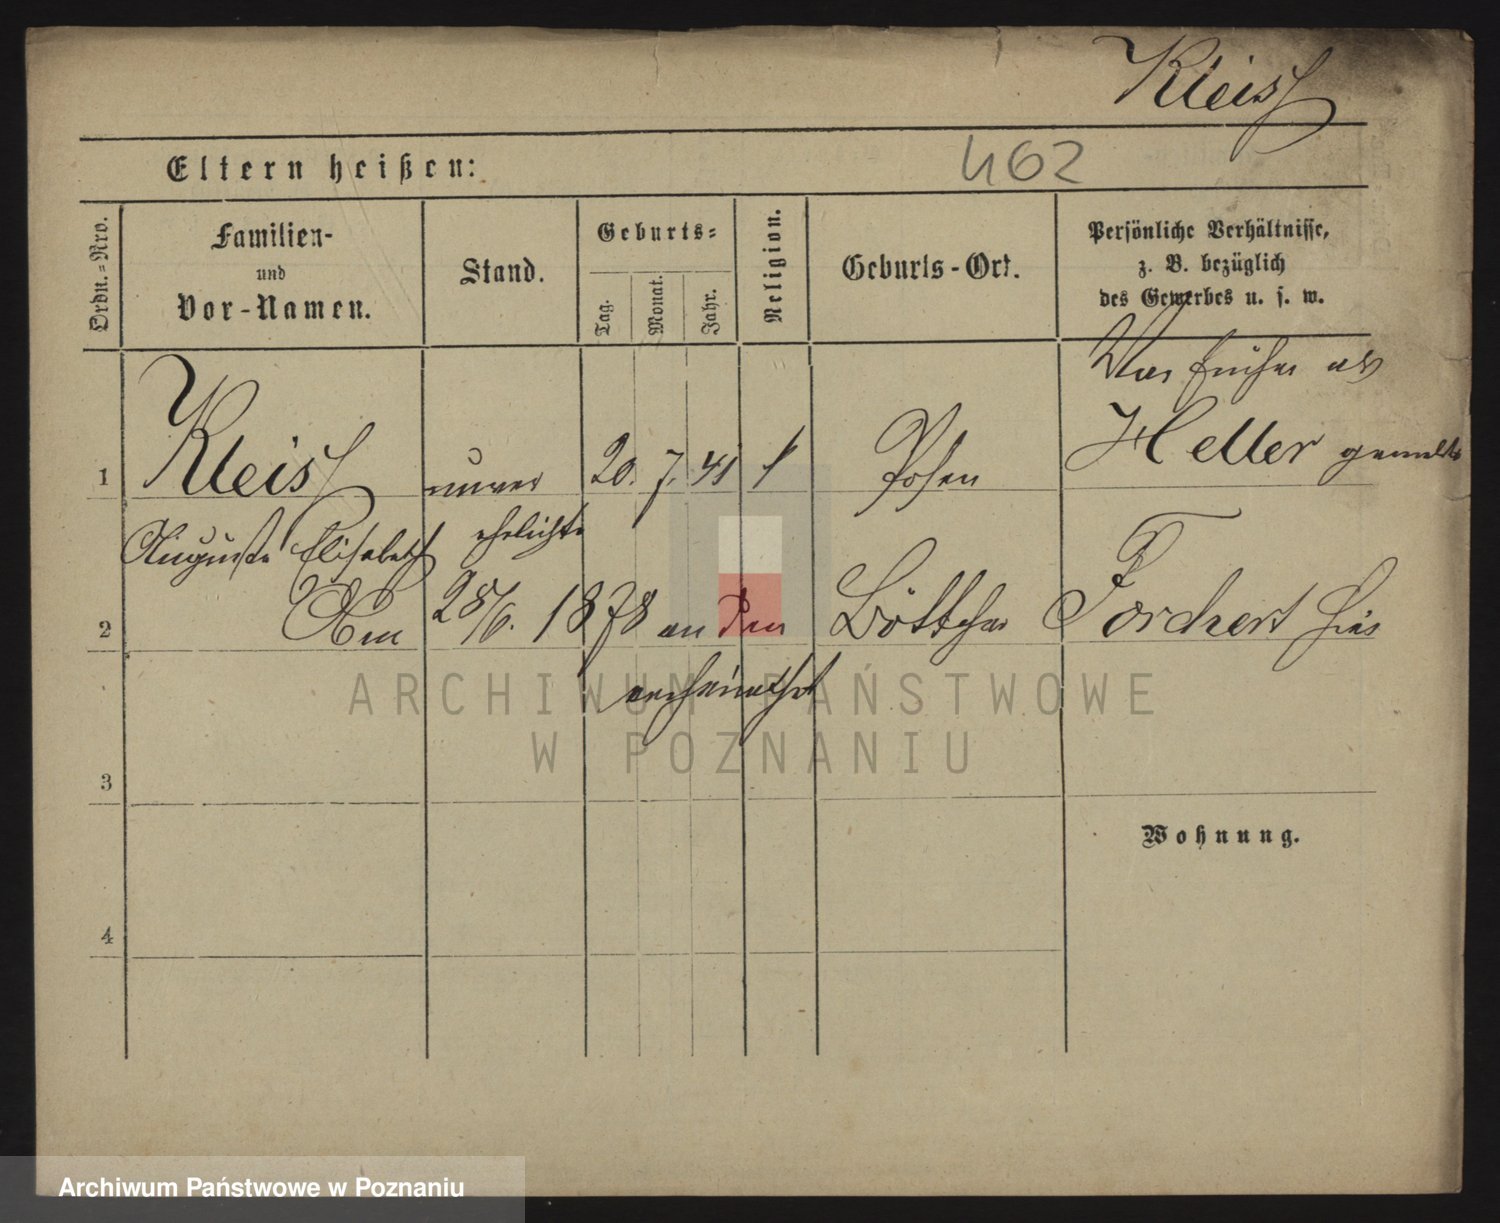 Kleist
462
Eltern heißen:
Ordn.=Nro.
Familien-
und
Vor-Namen.
Stand.
Geburts=
Tag.
Monat.
Jahr.
Religion.
Geburts-Ort.
Persönliche Verhältnisse,
z. B. bezüglich
des Gewerbes u. s. w.
War früher als
1 Kleist unver 20. 7. 41 Posen Heller gemeldet
Auguste Elisabeth ehelichte
2 Am 28/6. 1878 an den Böttcher Forchert hier
verheirathet
ARCHIWUM PAŃSTWOWE
W POZNANIU
3
Wohnung.
4
Archiwum Państwowe w Poznaniu